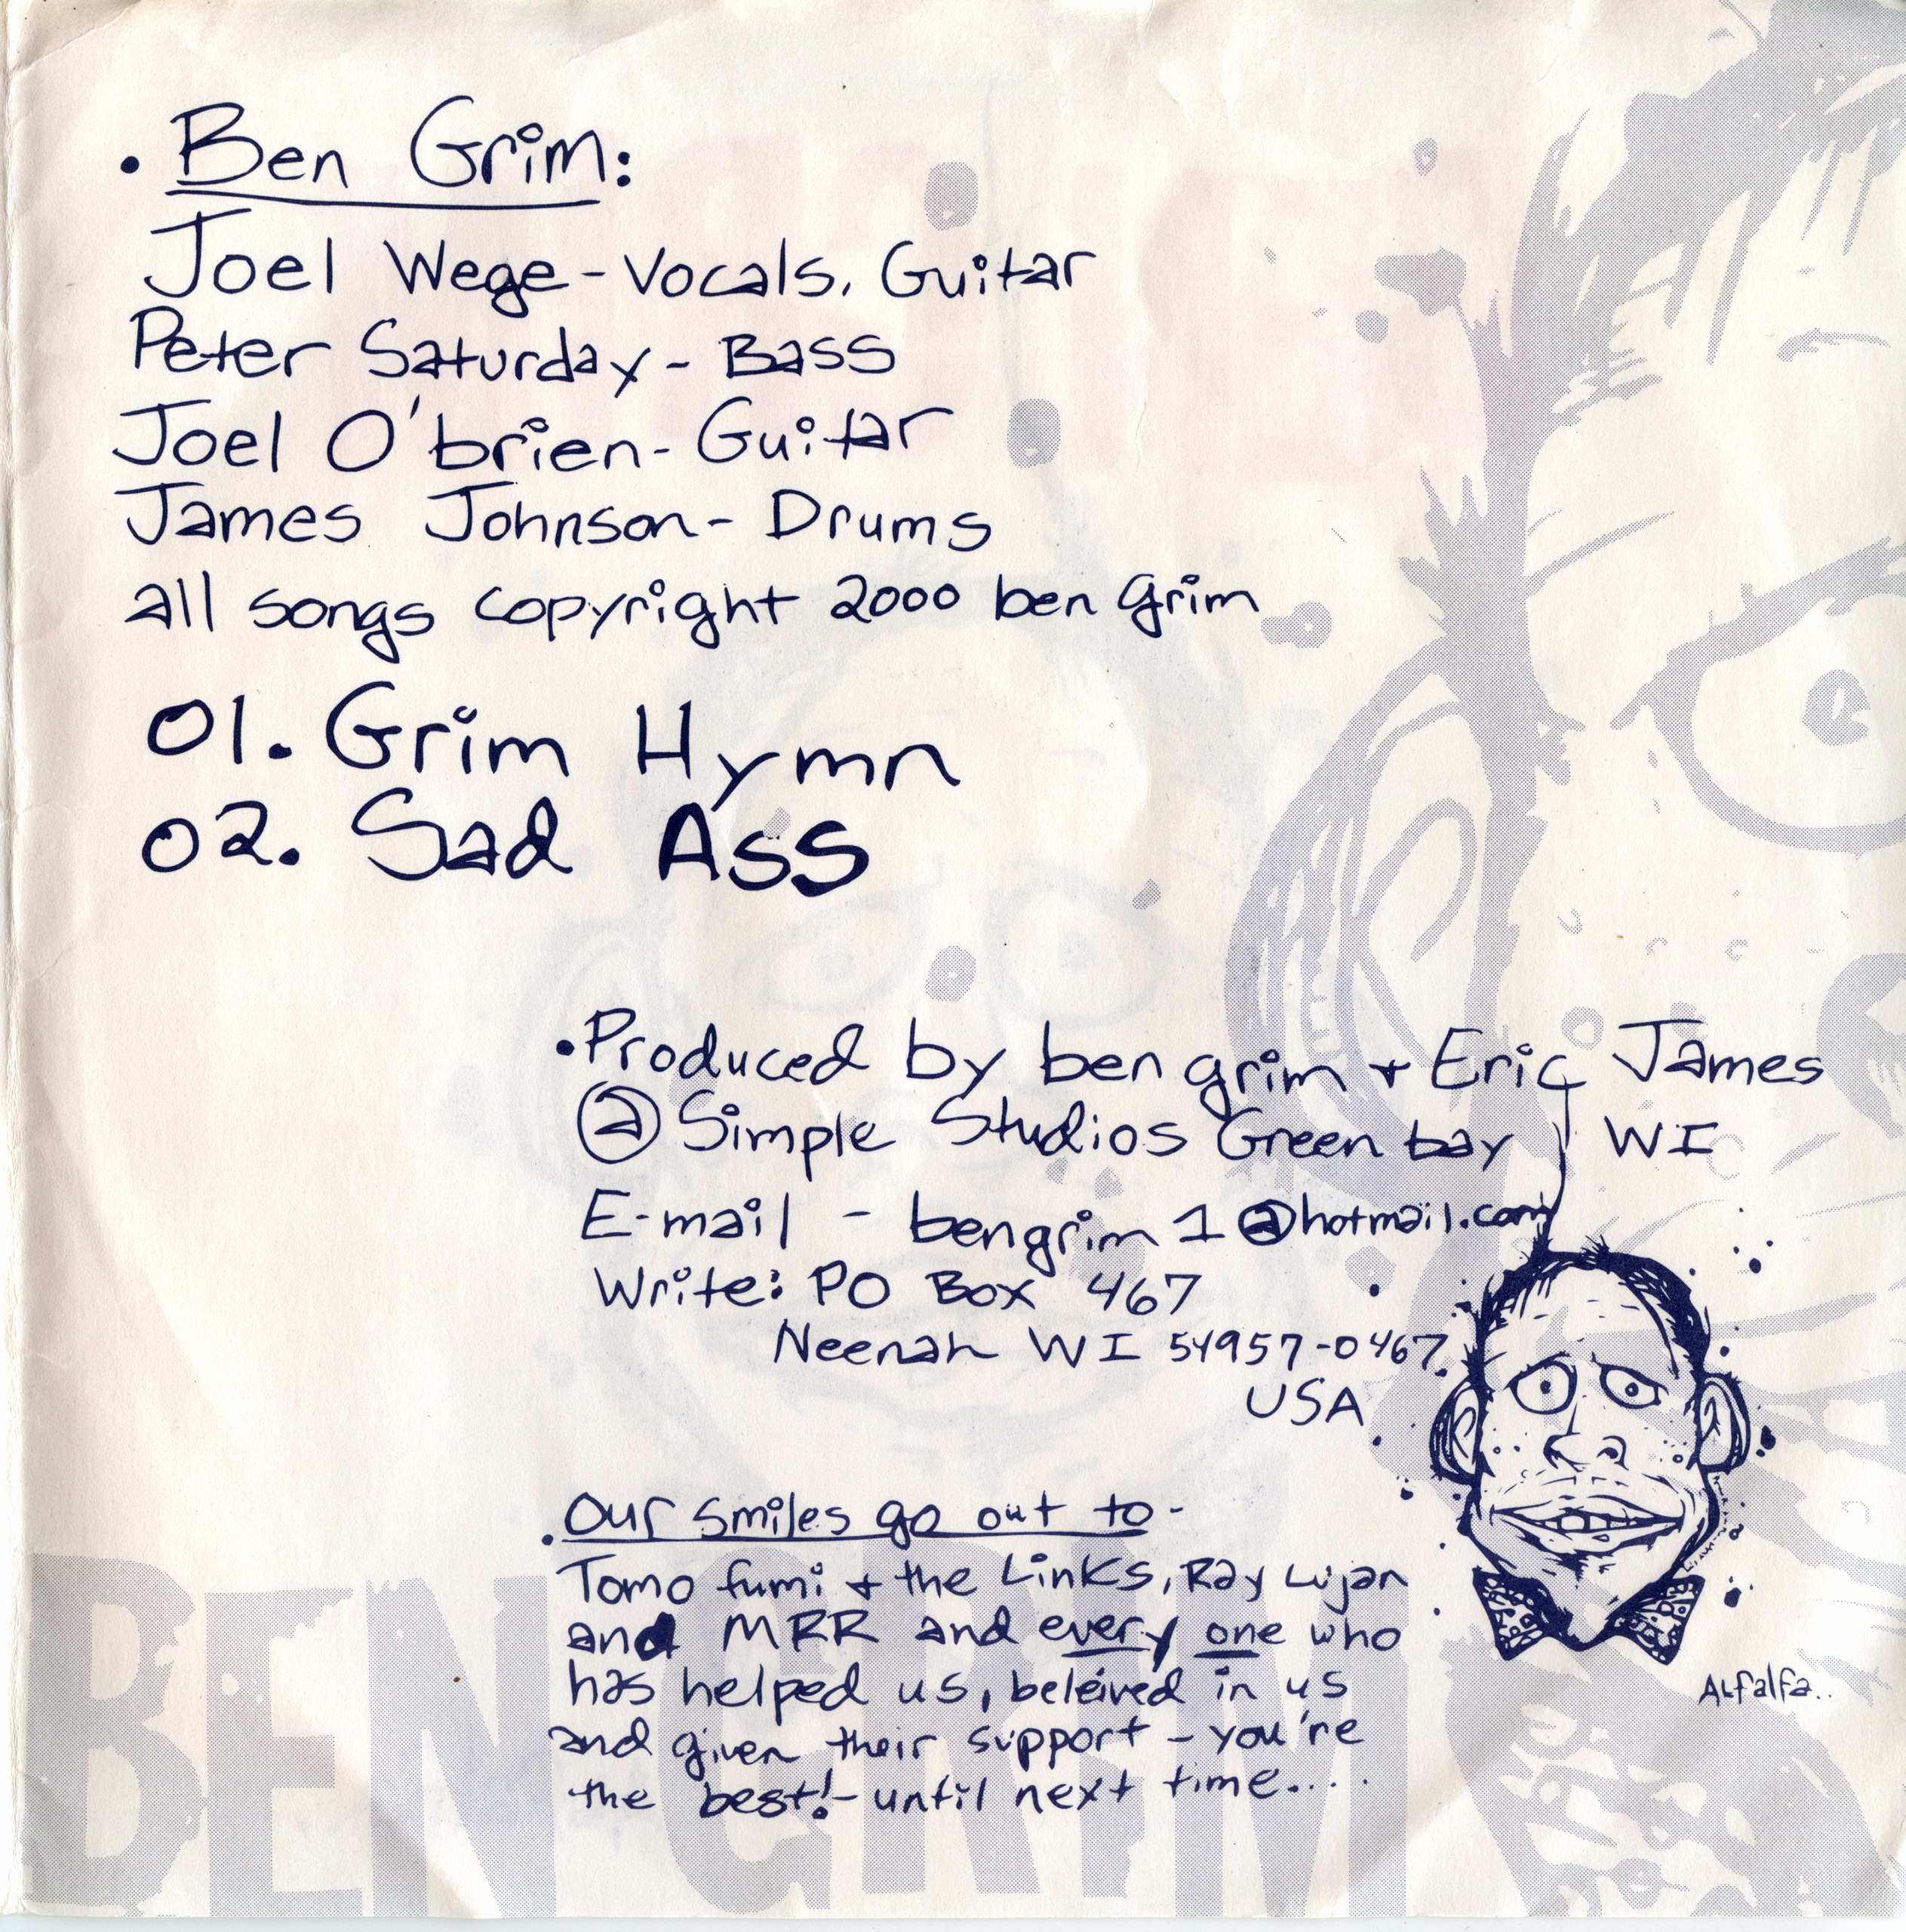 • Ben Grim:
Joel Wege - Vocals, Guitar
Peter Saturday - Bass
Joel O'brien - Guitar
James Johnson - Drums
all songs copyright 2000 ben grim
01. Grim Hymn
02. Sad Ass
• Produced by ben grim + Eric James
@ Simple Studios Green bay WI
E-mail - bengrim1@hotmail.com
Write: PO Box 467
Neenah WI 54957-0467
USA
• Our smiles go out to -
Tomo fumi + the Links, Ray Lujan
and MRR and every one who
has helped us, beleived in us
and given their support - you're
the best! - until next time....
Alfalfa..
BEN GRIM